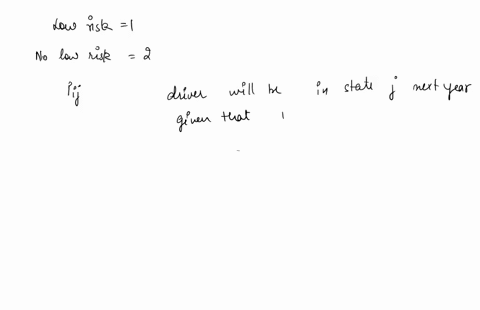 Low risk = 1
No low risk = 2
Pij driver will be in state j next year
given that